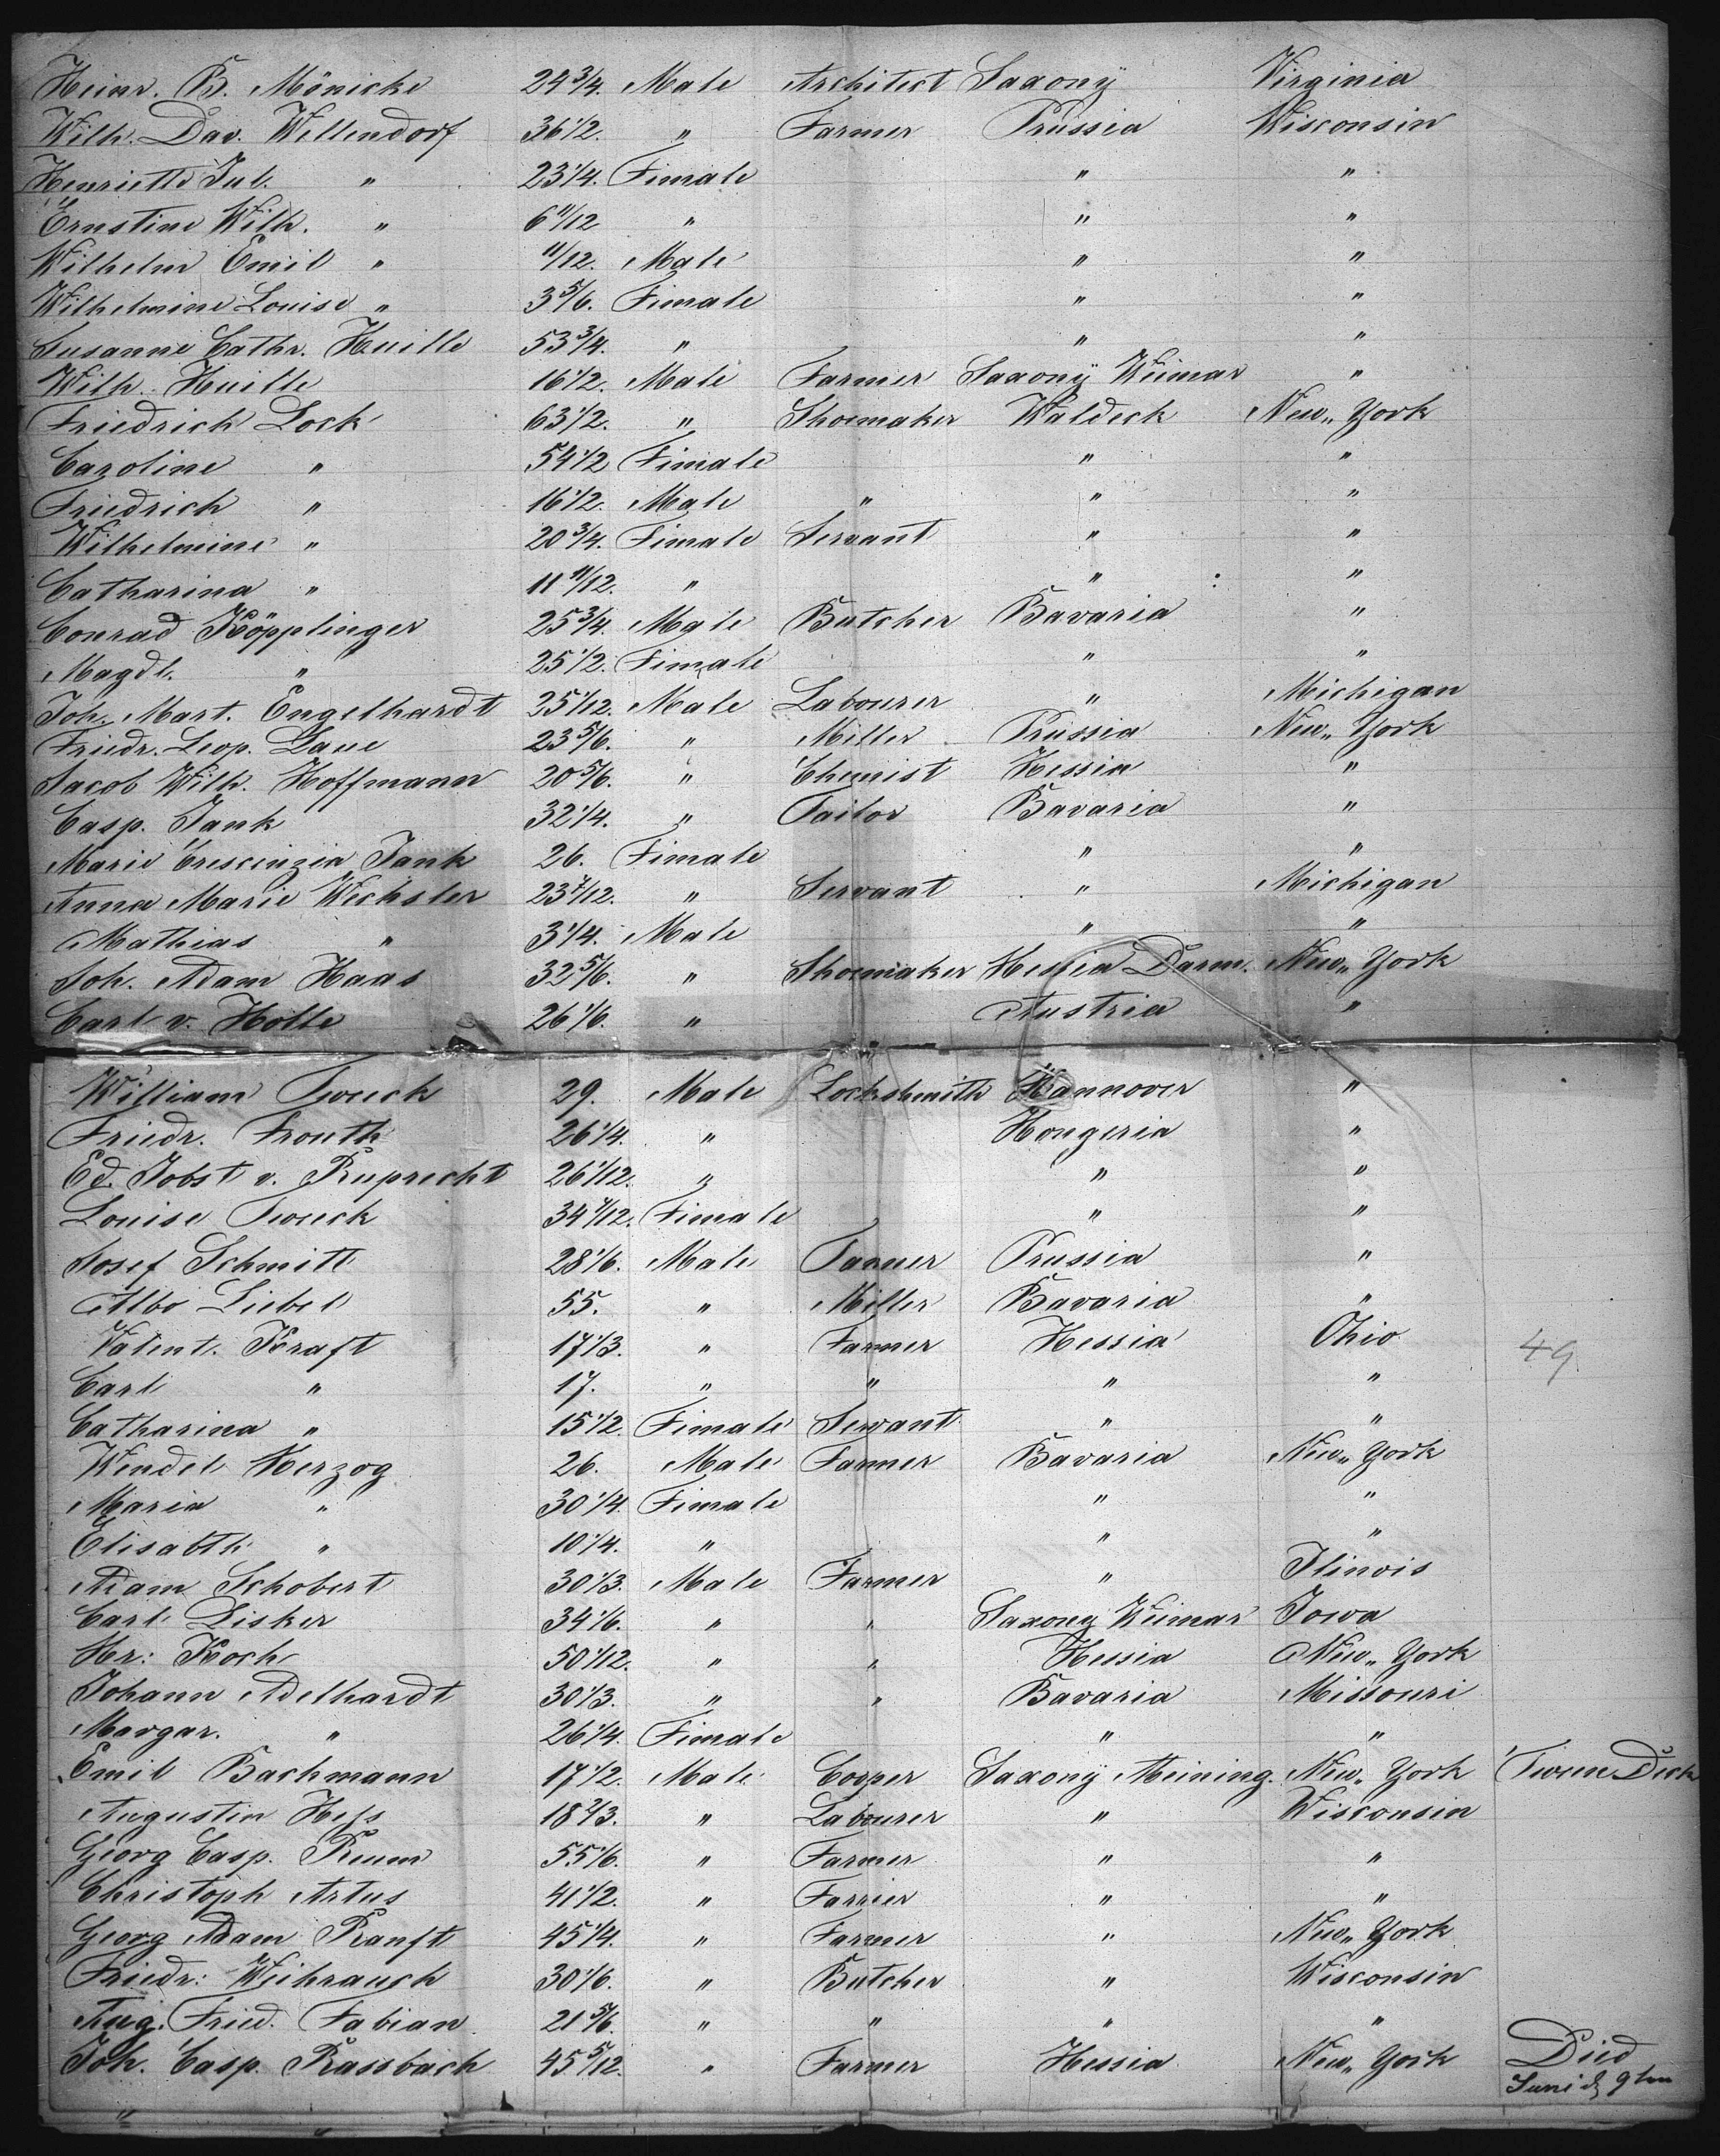 Heinr. B. Mönicke 24 3/4. Male Architect Saxony Virginia
Wilh. Dav. Wellendorf 36 1/2. " Farmer Prussia Wisconsin
Henriette Jul. " 23 1/4. Female " "
Ernstine Wilh. " 6 11/12 " " "
Wilhelm Emil " 11/12. Male " "
Wilhelmine Louise " 3 5/6. Female " "
Susanne Cathr. Huille 53 3/4. " " "
Wilh. Huille 16 1/2. Male Farmer Saxony Weimar "
Friedrich Lock 63 1/2. " Shoemaker Waldeck New„ York
Caroline " 54 1/2 Female " "
Friedrich " 16 1/2. Male " " "
Wilhelmine " 20 3/4. Female Servant " "
Catharina " 11 11/12. " " "
Conrad Köpplinger 25 3/4. Male Butcher Bavaria "
Magdl. " 25 1/2. Female " "
Joh. Mart. Engelhardt 25 1/12. Male Labourer " Michigan
Friedr. Leop. Laue 23 5/6. " Miller Prussia New„ York
Jacob Wilh. Hoffmann 20 5/6. " Chemist Hessia "
Casp. Jank 32 1/4. " Tailor Bavaria "
Marie Crescinzia Jank 26. Female " "
Anna Marie Wechsler 23 7/12. " Servant " Michigan
Mathias " 3 1/4. Male " "
Joh. Adam Haas 32 5/6. " Shoemaker Hessia Darm. New„ York
Carl v. Holle 26 1/6. " Austria "
William Tweck 29. Male Lockshmith Hannover "
Friedr. Fronth 26 1/4. " Hongeria "
Ed. Jobst v. Ruprecht 26 1/12. " " "
Louise Tweck 34 7/12. Female " "
Josef Schmitt 28 1/6. Male Tanner Prussia "
Albo Liebel 55. " Miller Bavaria "
Valent. Kraft 17 1/3. " Farmer Hessia Ohio 49
Carl " 17. " " " "
Catharina " 15 1/2. Female Servant " "
Wendel Herzog 26. Male Farmer Bavaria New„ York
Maria " 30 1/4. Female " "
Elisabth " 10 1/4. " " "
Adam Schobert 30 1/3. Male Farmer " Ilinois
Carl Lisker 34 1/6. " " Saxony Weimar Iowa
Hr: Koch 50 1/12. " " Hessia New„ York
Johann Adelhardt 30 1/3. " " Bavaria Missouri
Margar. " 26 1/4. Female " "
Emil Bachmann 17 1/2. Male Cooper Saxony Meining. New„ York Tween Deck
Augustin Hess 18 2/3. " Labourer " Wisconsin
Georg Casp. Reum 55 1/6. " Farmer " "
Christoph Artus 41 1/2. " Farmer " "
Georg Adam Ranft 45 1/4. " Farmer " New„ York
Friedr: Weihrauch 30 1/6. " Butcher " Wisconsin
Aug. Fried. Fabian 21 5/6. " " " "
Joh. Casp. Rassbach 45 5/12. " Farmer Hessia New„ York Died
Juni 9ten